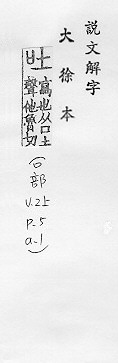 說文解字
大徐本
吐
寫也从口土
聲他魯切
(口部
v.2上
p.5
a.1)